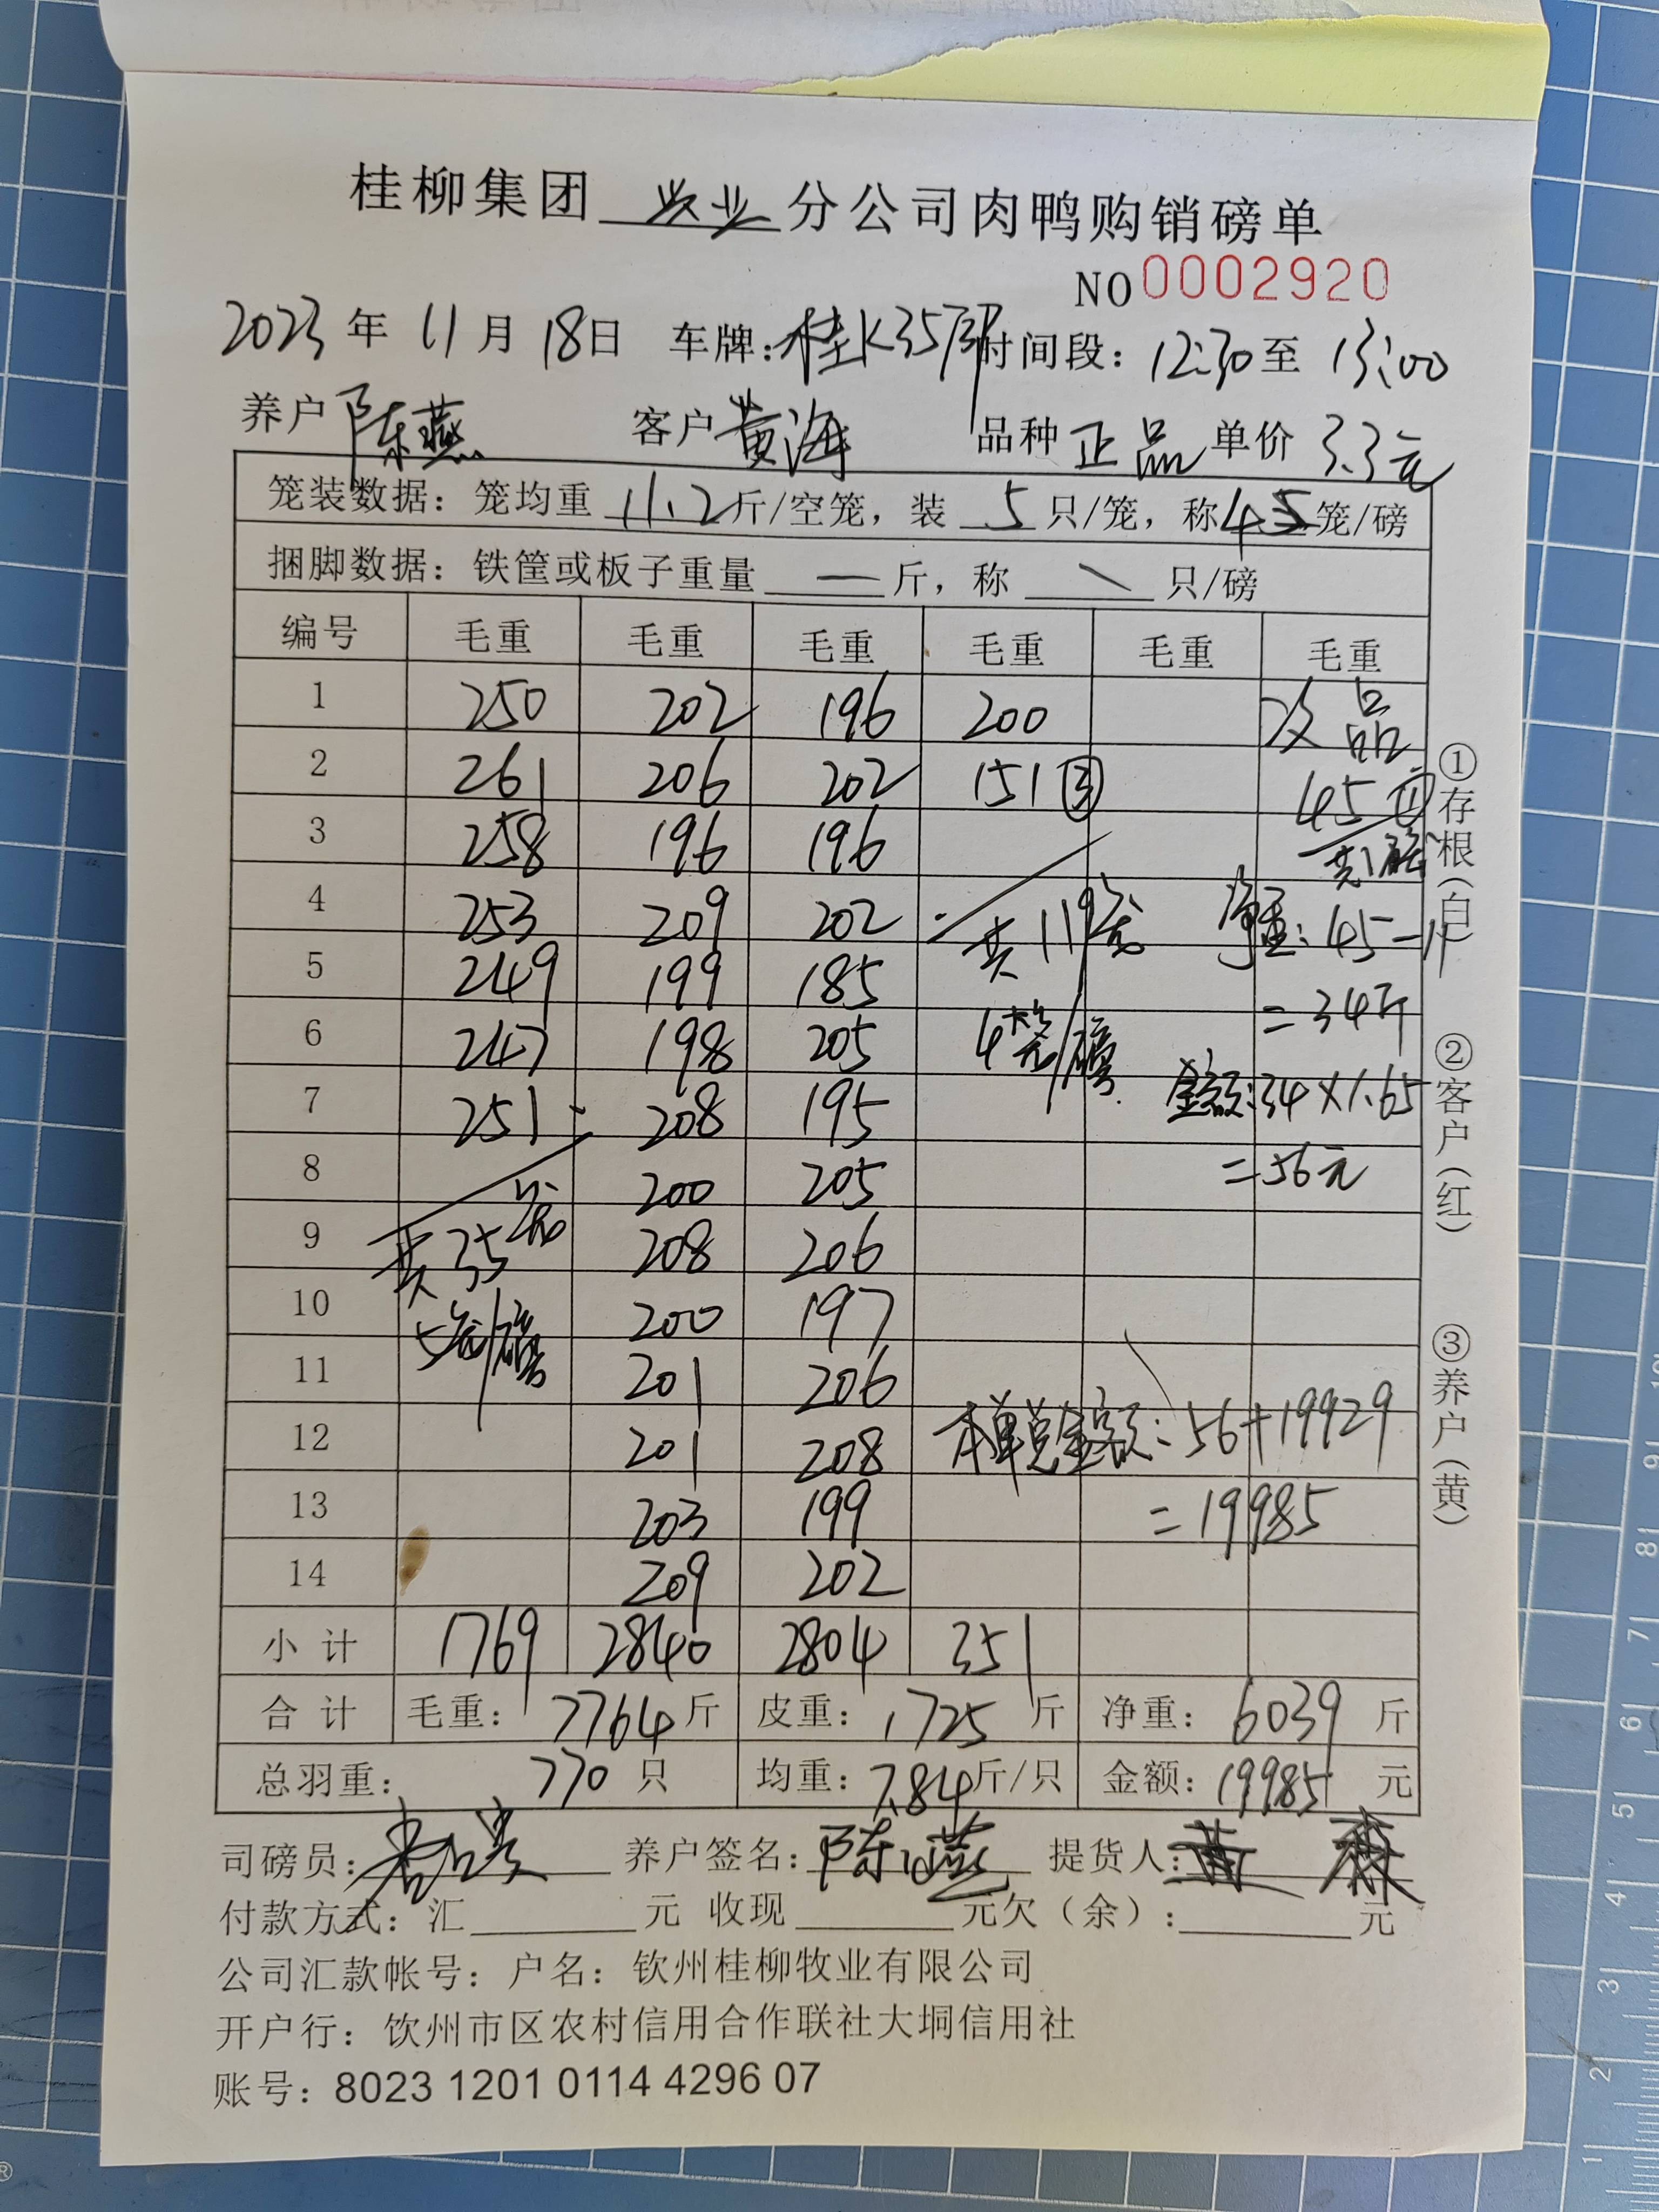 桂柳集团 牧业 分公司肉鸭购销磅单
NO 0002920
2023 年 11 月 18 日 车牌: 桂K35 时间段: 12:30 至 13:00
养户 陈燕 客户 黄海 品种 正品 单价 3.3元
笼装数据: 笼均重 11.2 斤/空笼, 装 5 只/笼, 称 4 5 笼/磅
捆脚数据: 铁筐或板子重量 — 斤, 称 \ 只/磅
编号 毛重 毛重 毛重 毛重 毛重 毛重
1 250 202 196 200 次品
2 261 206 202 151 ③ 45 ①
3 258 196 196 共1笼
4 253 209 202 共119笼 净重: 45-11
5 249 199 185 =34斤
6 247 198 205 4笼/磅
7 251 208 195 金额: 34×1.65
8 200 205 =56元
9 共35笼 208 206
10 5笼/磅 200 197
11 201 206
12 201 208 本单总金额: 56+19929
13 203 199 =19985
14 209 202
小计 1769 2840 2804 351
合计 毛重: 7764 斤 皮重: 1725 斤 净重: 6039 斤
总羽重: 770 只 均重: 7.84 斤/只 金额: 19985 元
①存根(白) ②客户(红) ③养户(黄)
司磅员: 养户签名: 陈燕 提货人: 黄
付款方式: 汇 元 收现 元欠(余): 元
公司汇款帐号: 户名: 钦州桂柳牧业有限公司
开户行: 钦州市区农村信用合作联社大垌信用社
账号: 8023 1201 0114 4296 07